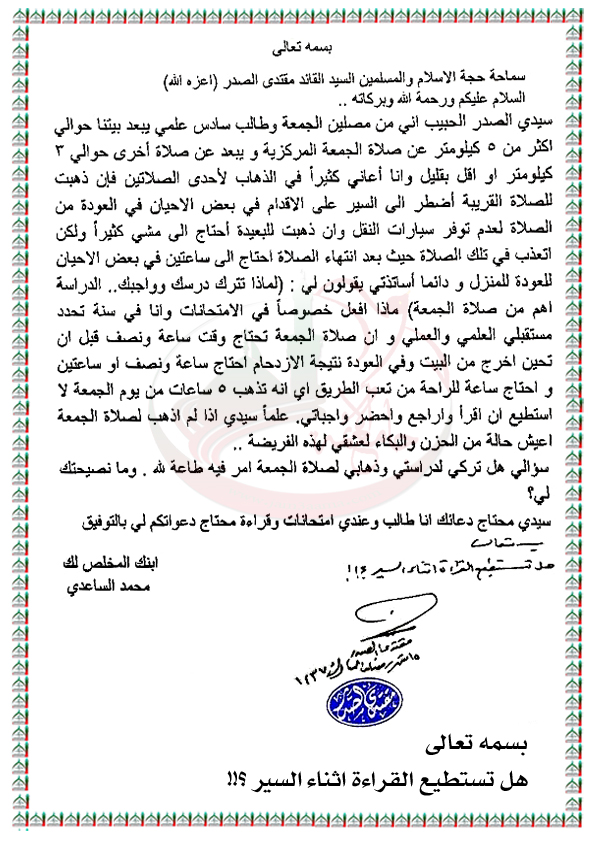 بسمه تعالى
سماحة حجة الاسلام والمسلمين السيد القائد مقتدى الصدر (اعزه الله)
السلام عليكم ورحمة الله وبركاته ..
سيدي الصدر الحبيب اني من مصلين الجمعة وطالب سادس علمي يبعد بيتنا حوالي
اكثر من ٥ كيلومتر عن صلاة الجمعة المركزية و يبعد عن صلاة أخرى حوالي ٣
كيلومتر او اقل بقليل وانا أعاني كثيراً في الذهاب لأحدى الصلاتين فإن ذهبت
للصلاة القريبة أضطر الى السير على الاقدام في بعض الاحيان في العودة من
الصلاة لعدم توفر سيارات النقل وان ذهبت للبعيدة أحتاج الى مشي كثيراً ولكن
اتعذب في تلك الصلاة حيث بعد انتهاء الصلاة احتاج الى ساعتين في بعض الاحيان
للعودة للمنزل و دائما أساتذتي يقولون لي : (لماذا تترك درسك وواجبك.. الدراسة
اهم من صلاة الجمعة) ماذا أفعل خصوصاً في الامتحانات وانا في سنة تحدد
مستقبلي العلمي والعملي و ان صلاة الجمعة تحتاج وقت ساعة ونصف قبل ان
تحين اخرج من البيت وفي العودة نتيجة الازدحام احتاج ساعة ونصف او ساعتين
و احتاج ساعة للراحة من تعب الطريق اي انه تذهب ٥ ساعات من يوم الجمعة لا
استطيع ان اقرأ واراجع واحضر واجباتي. علماً سيدي اذا لم اذهب لصلاة الجمعة
اعيش حالة من الحزن والبكاء لعشقي لهذه الفريضة ..
سؤالي هل تركي لدراستي وذهابي لصلاة الجمعة امر فيه طاعة لله . وما نصيحتك
لي؟
سيدي محتاج دعائك انا طالب وعندي امتحانات وقراءة محتاج دعواتكم لي بالتوفيق
بسمه تعالى
هل تستطيع القراءة اثناء السير ؟!!
ابنك المخلص لك
محمد الساعدي
مقتدى الصدر
١٥ شهر رمضان المبارك ١٤٣٧
مقتدى الصدر
بسمه تعالى
هل تستطيع القراءة اثناء السير ؟!!